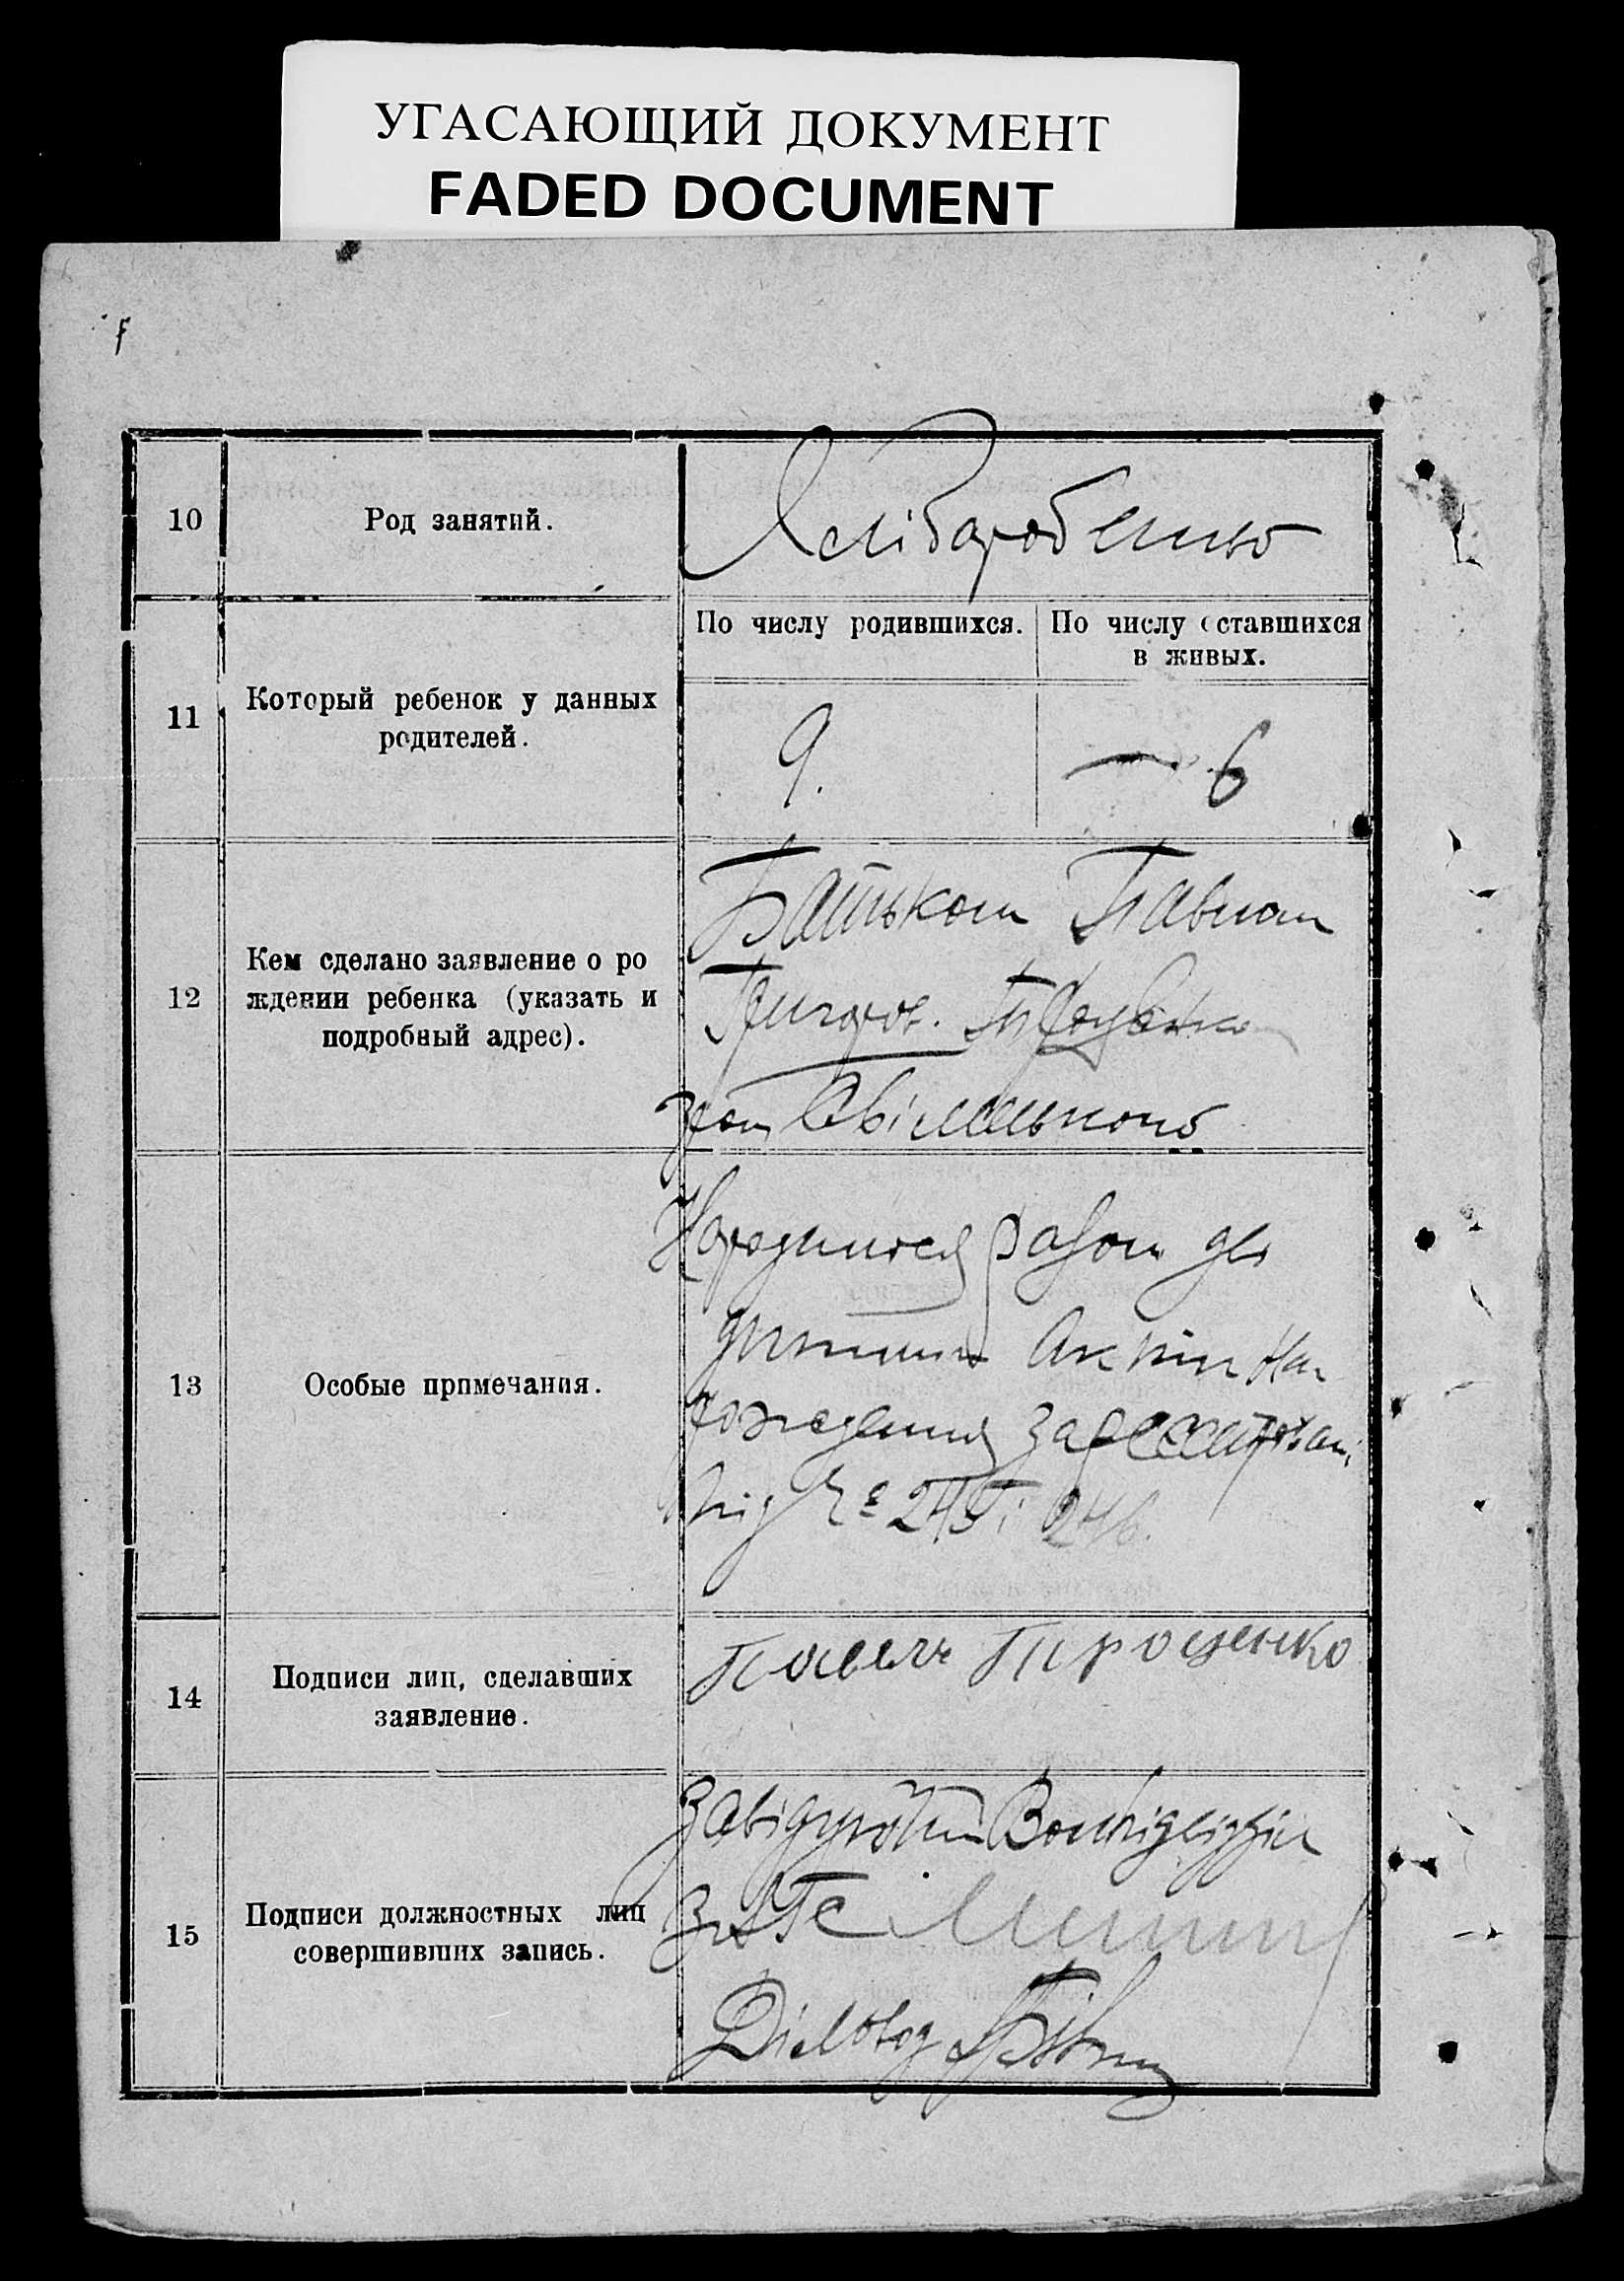 УГАСАЮЩИЙ ДОКУМЕНТ
FADED DOCUMENT
10
Род занятий.
Хліборобство
11
Который ребенок у данных
родителей.
По числу родившихся.
По числу оставшихся
в живых.
9.
— 6
12
Кем сделано заявление о ро
ждении ребенка (указать и
подробный адрес).
Батьком Павлом
Григоров.
13
Особые примечания.
Народилося разом дві
дитини Акти на
рождения зареєстровані
під № 245 і 246.
14
Подписи лиц, сделавших
заявление.
Павелъ Прощенко
15
Подписи должностных лиц
совершивших запись.
Завідуючий
ЗАГС
Діловод